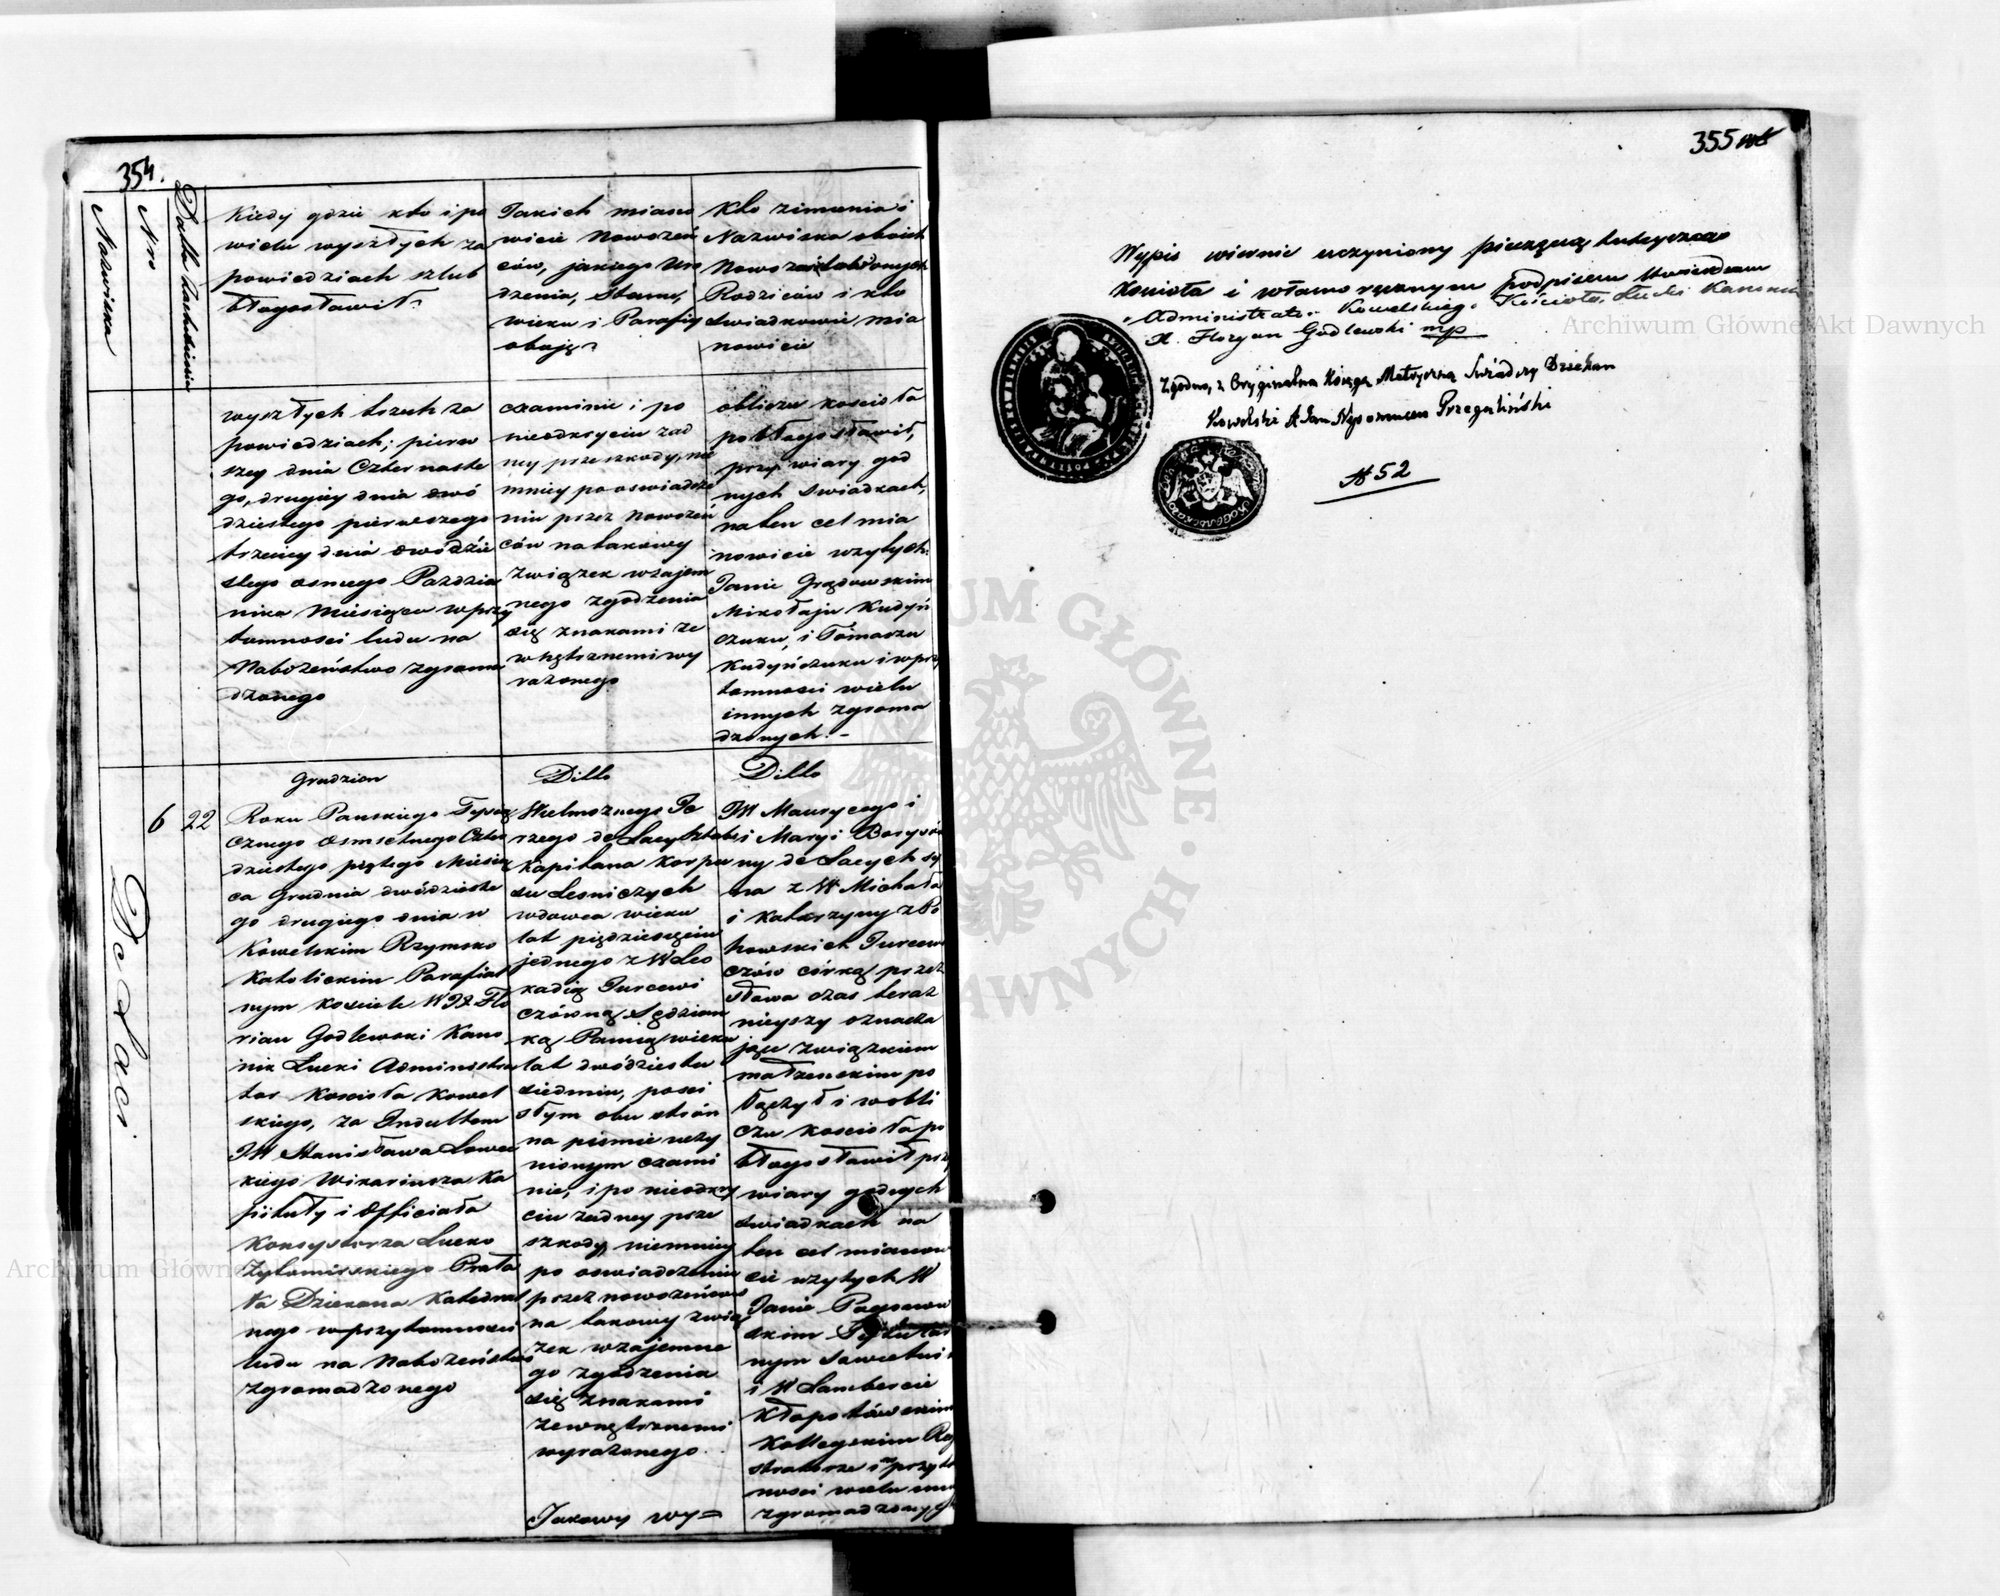 354.
Nazwiska
Nro
Data Zaślubienia
Kiedy gdzie kto i po
wielu wyszłych za
powiedziach szlub
błogosławił?
Jakich miano
wicie Nowożeń
ców, jakiego Uro
dzenia, Stanu,
wieku i Parafij
obaję?
Kto z imienia i
Nazwiska oboich
Nowozaślubionych
Rodziców i kto
świadkowie mia
nowicie
wyszłych trzech za
powiedziach; pierw
szey dnia Czternaste
go, drugiey dnia dwó
dziestego pierwszego
trzeciey dnia dwódzie
stego osmego Paździer
nika Miesiąca w przy
tomności ludu na
Nabożeństwo zgroma
dzonego
examinie i po
nieodkryciu żad
ney przeszkody, nie
mniey po oswiadcze
niu przez Nowożeń
ców na takowy
związek wzajem
nego zgodzenia
się znakami ze
wnętrznemi wy
rażonego
obliczu kościoła
pobłogosławił,
przy wiary god
nych świadkach,
na ten cel mia
nowicie wzytych:
Janie Grądowskim
Mikołaju Kudyń
czuku, i Tomaszu
Kudyńczuku i w przy
tomności wielu
innych zgroma
dzonych. –
De Laci
6
22
Grudzien
Roku Pańskiego Tysiąc
cznego osmsetnego Czter
dziestego piątego Miesią
ca Grudnia dwódzieste
go drugiego dnia w
Kowelskim Rzymsko
Katolickim Parafial
nym kościele WJX Flo
rian Godlewski Kano
nik Łucki Administra
tor Kościoła Kowel
skiego, za Indultem
JW Stanisława Lowec
kiego Wikariusza Ka
pituły i Officiała
Konsystorza Łucko
Żytomirskiego Prała
ta Dziekana Katedral
nego w przytomności
ludu na Nabożeństwo
zgromadzonego
Ditto
Wielmożnego Je
rzego de Lacy Sztabs
Kapitana Korpu
su Lesniczych
wdowca wieku
lat pięдziesięciu
jednego z W Leo
kadią Jurcewi
czówną Sędzian
ką Panną wieku
lat dwódziestu
siedmiu, po ści
słym obu stron
na piśmie uczy
nionym exami
nie, i po nieodkry
ciu żadney prze
szkody, niemniey
po oswiadczeniu
przez nowożeńców
na takowy zwią
zek wzajemne
go zgodzenia
się znakami
zewnętrznemi
wyrażonego.
Jakowy wy=
Ditto
JW Maurycego i
i Maryi Borysów
ny de Lacych sy
na z W Michała
i Katarzyny z Po
howskich Jurcewi
czów córką przez
słowa czas teraz
nieyszy oznacza
jące związkiem
małżenskim po
łączył i w obli
czu kościoła po
błogosławił przy
wiary godnych
świadkach na
ten cel mianow
cie wzytych W
Janie
skim Tytular
nym Sowietni
i W Lambercie
Kłopotowskim
Kollegskim Reg
stratorze i w przyto
mności wielu inn
zgromadzonych
355
Wypis wiernie uczyniony pieczęcią tuteyszego
Kościoła i własnoręcznym podpisem stwierdzam
Administrator Kowelskiego Kościoła, Łucki Kanonik
X. Floryan Godlewski mp
Zgodno, z Oryginalną Księgą Metryczną Świadczę Dziekan
Kowelski X Jan Nepomucen Przegaliński
N 52
Archiwum Główne Akt Dawnych
Archiwum Główne Akt Dawnych